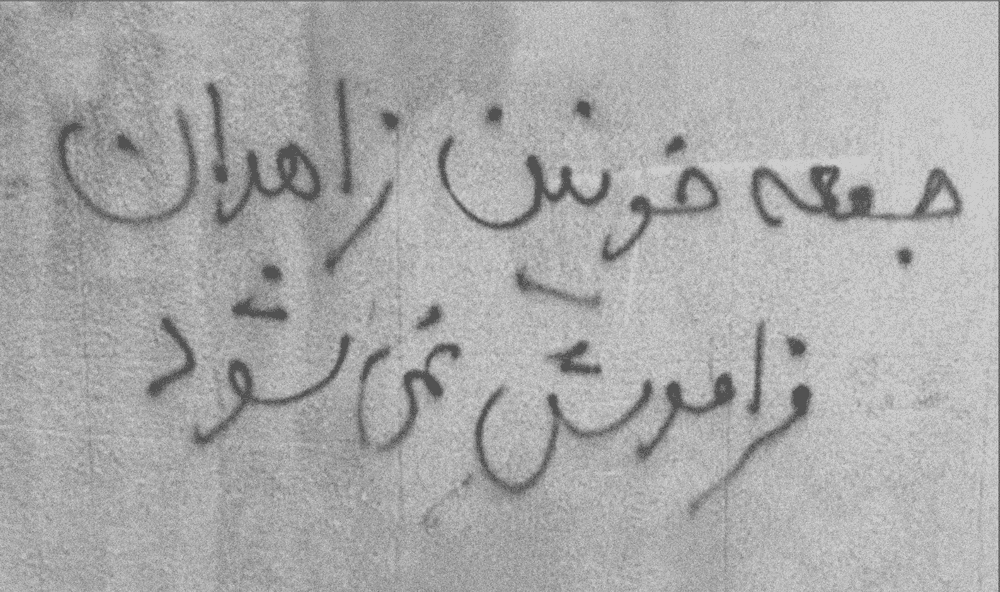 جمعه خونین زاهدان
فراموش نمی‌شود